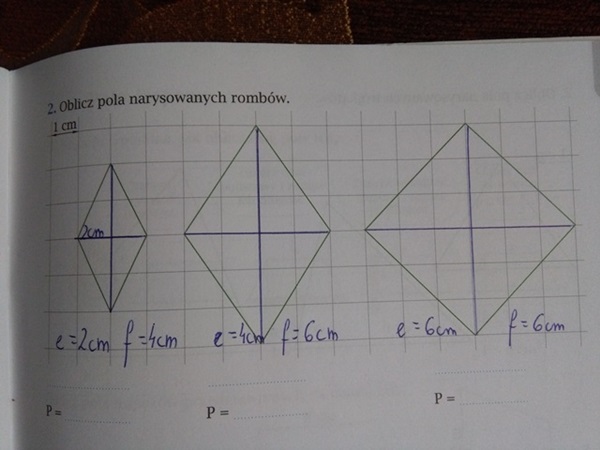 2. Oblicz pola narysowanych rombów.
1 cm
2cm
e=2cm f=4cm e=4cm f=6cm e=6cm f=6cm
P = P = P =